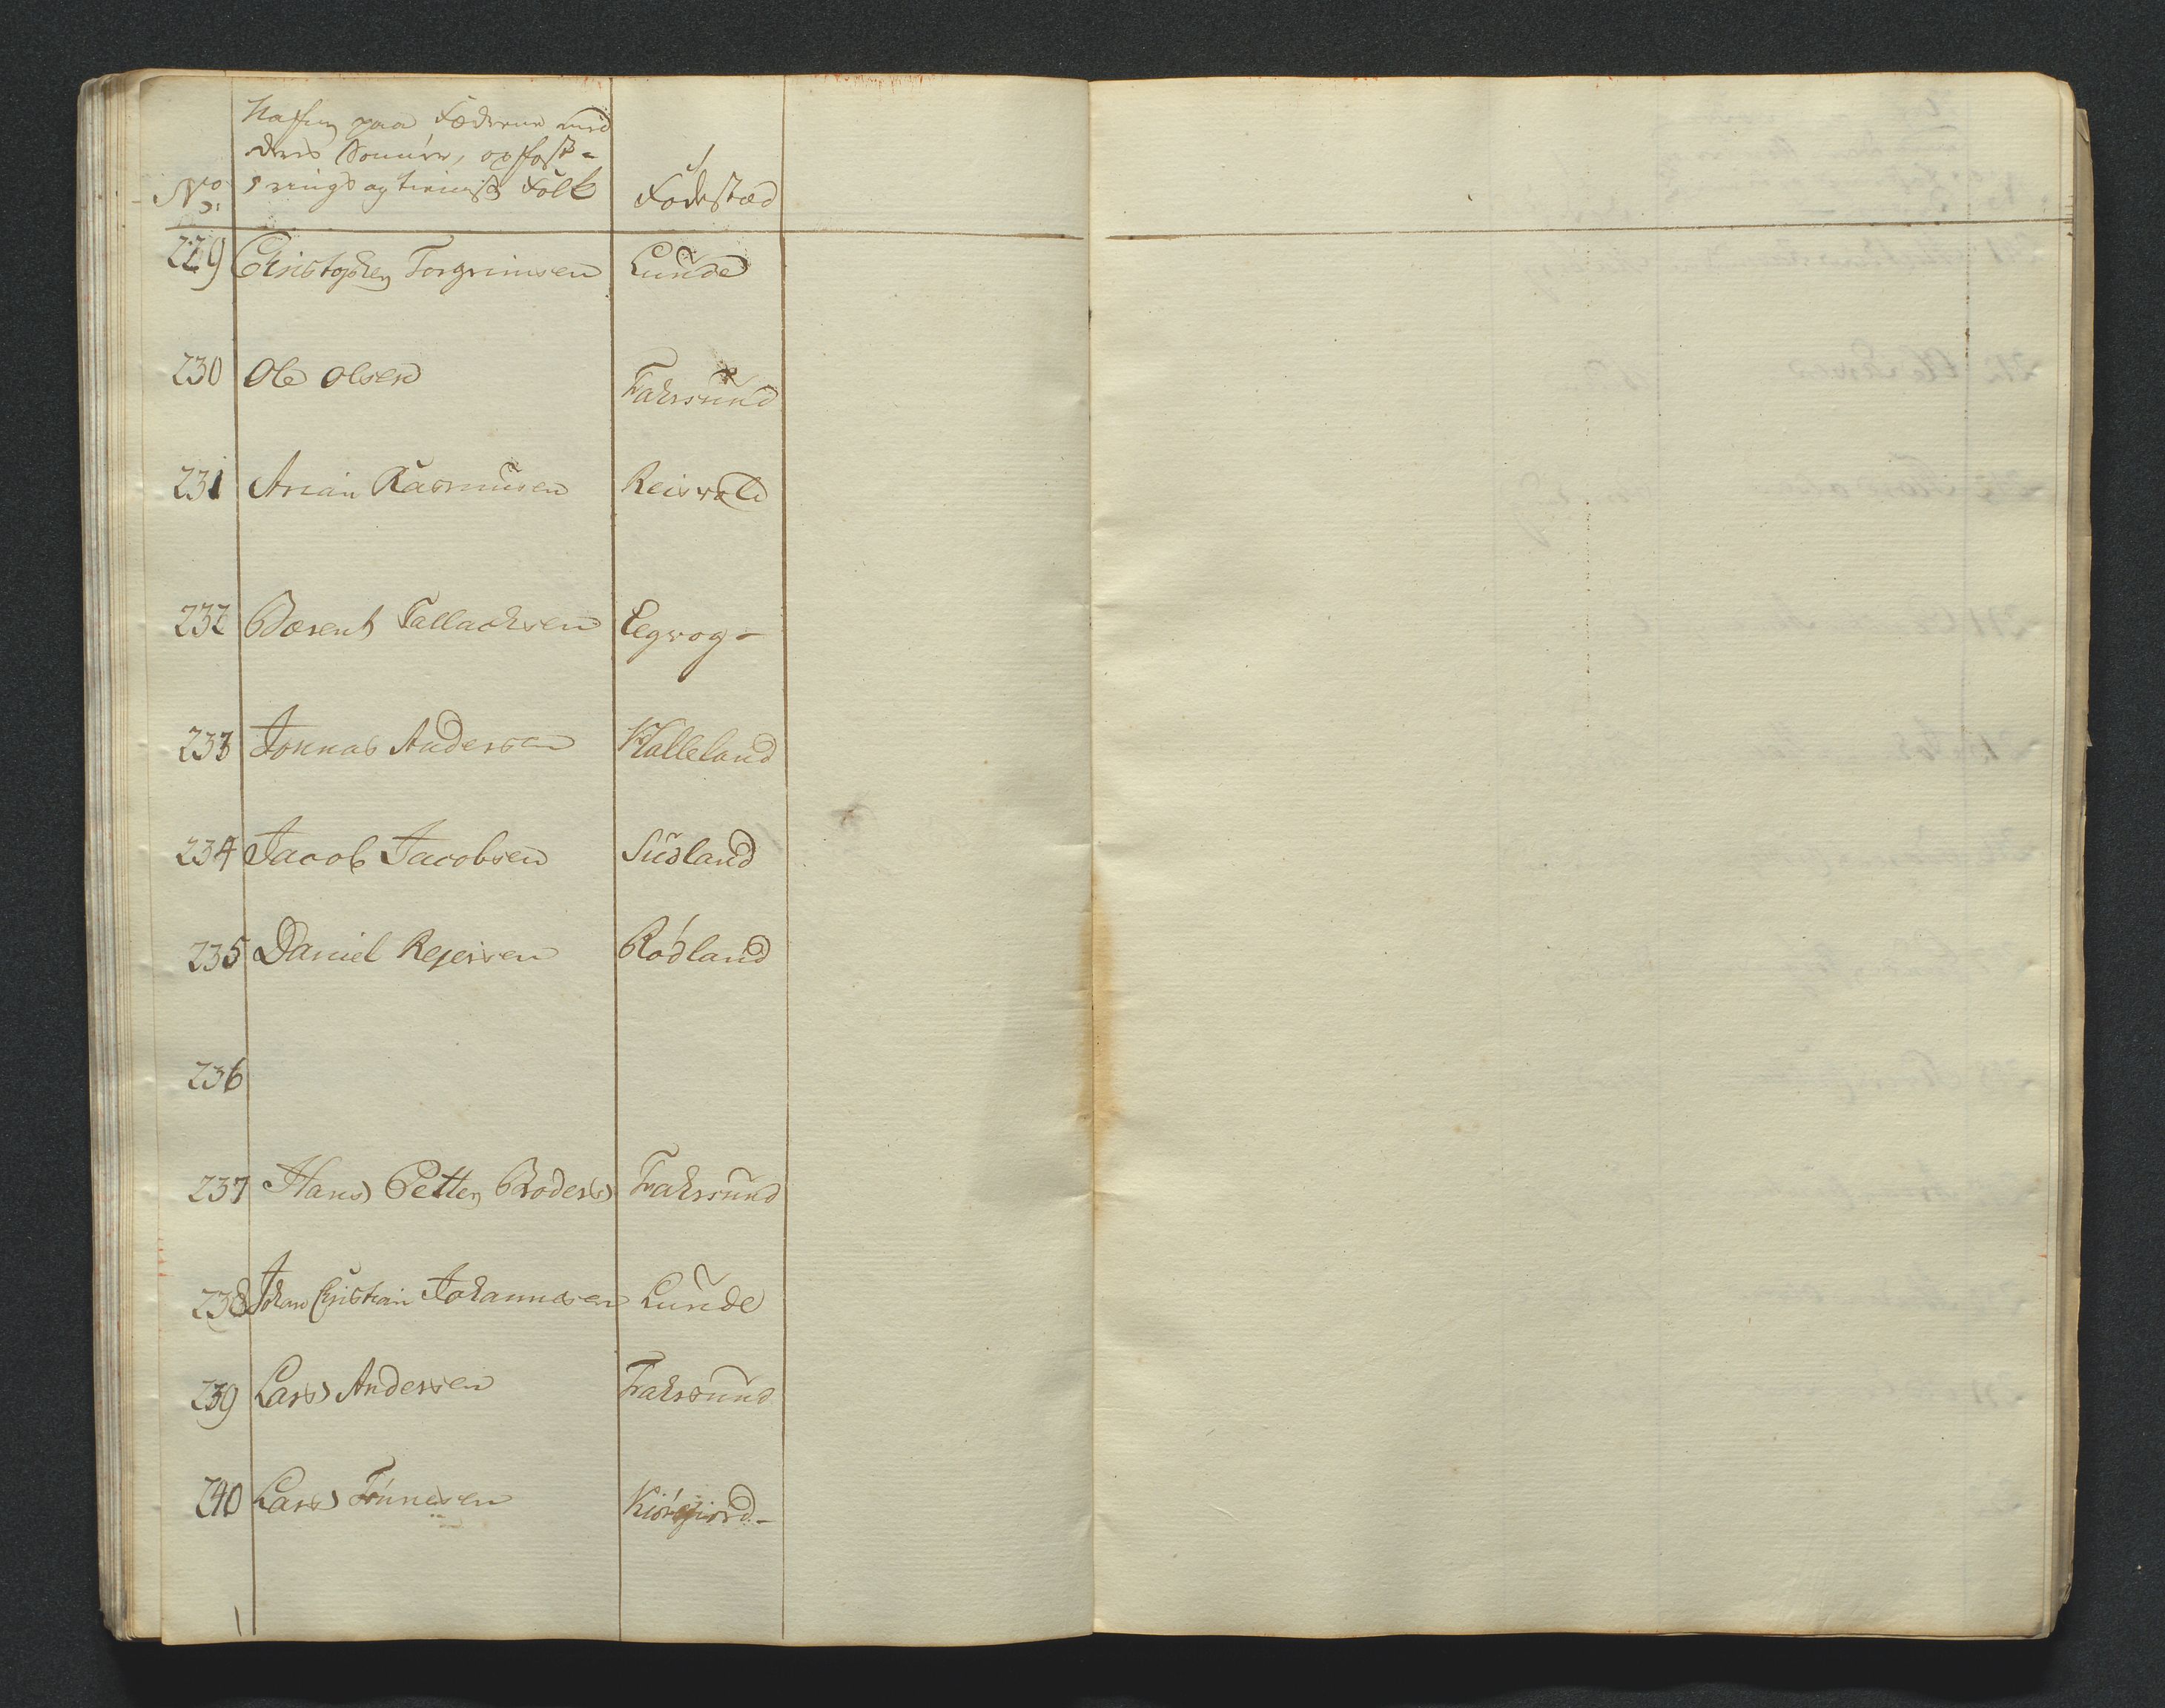 No: Nafn paa Fædrene med
deres Sønner, opfost-
rings og tieniste Folk Fødestæd
229 Christopher Torgrimsen Lunde
230 Ole Olsen Fahrsund
231 Arian Rasmusen
232 Berent Tallachsen Eegvog-
233 Jonnas Andersen Kalleland
234 Jacob Jacobsen Sudland
235 Daniel Rejersen Rødland
236
237 Hans Petter Broders Fahrsund
238 Johan Christian Johannesen Lunde
239 Lars Andersen Fahrsund
240 Lars Tønnesen